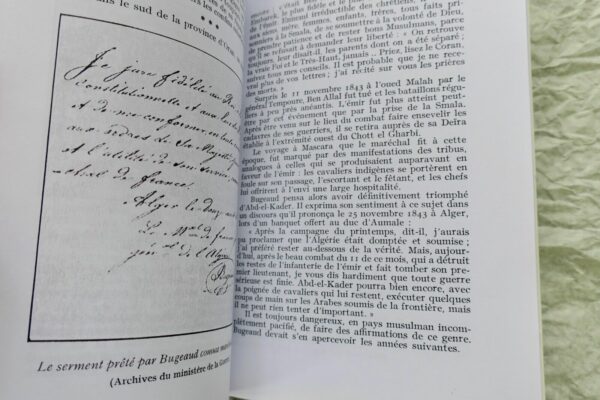 dans le sud de la province d'Oran
***
Je jure fidélité au
constitutionnelle et aux
et de me conformer en
aux ordres de Sa Majesté
et l'utilité de son service
de france.
Alger le
Le de france
de l'Algérie
Le serment prêté par Bugeaud comme
(Archives du ministère de la Guerre
Embarek, le fidèle et le
de l'émir Ennemi irréductible des chrétiens, il
à la Smala, de se soumettre à la volonté de Dieu,
de prendre patience et de rester bons Musulmans, parce
qu'il se refusait à demander leur liberté : « On retrouve
leur disait-il, les parents dont on a été séparé ;
la vraie Foi et le Très-Haut, jamais... Priez, lisez le Coran,
suivez tous mes conseils. Il est probable que je ne
plus de vos lettres ; j'ai récité sur vous les prières
des morts. »
Surpris le 11 novembre 1843 à l'oued Malah par le
général Tempoure, Ben Allal fut tué et les bataillons
à peu près anéantis. L'émir fut plus atteint
être par cet événement que par la prise de la Smala.
Après être venu sur le lieu du combat faire ensevelir les
cadavres de ses guerriers, il se retira auprès de sa Deïra
établie à l'extrémité ouest du Chott el Gharbi.
Le voyage à Mascara que le maréchal fit à cette
époque, fut marqué par des manifestations des tribus,
analogues à celles qui se produisaient auparavant en
l'honneur de l'émir : les cavaliers indigènes se portèrent en
foule sur son passage, l'escortant et le fêtant, et les chefs
lui offrirent à l'envi une large hospitalité.
Bugeaud pensa alors avoir définitivement triomphé
d'Abd-el-Kader. Il exprima son sentiment à ce sujet dans
un discours qu'il prononça le 25 novembre 1843 à Alger,
lors d'un banquet offert au duc d'Aumale :
« Après la campagne du printemps, dit-il, j'aurais
pu proclamer que l'Algérie était domptée et soumise ;
j'ai préféré rester au-dessous de la vérité. Mais, aujour-
d'hui, après le beau combat du 11 de ce mois, qui a détruit
les restes de l'infanterie de l'émir et fait tomber son pre-
mier lieutenant, je vous dis hardiment que toute guerre
sérieuse est finie. Abd-el-Kader pourra bien encore, avec
la poignée de cavaliers qui lui restent, exécuter quelques
coups de main sur les Arabes soumis de la frontière, mais
il ne peut rien tenter d'important. »
Il est toujours dangereux, en pays musulman incom-
plètement pacifié, de faire des affirmations de ce genre.
Bugeaud devait s'en apercevoir les années suivantes.